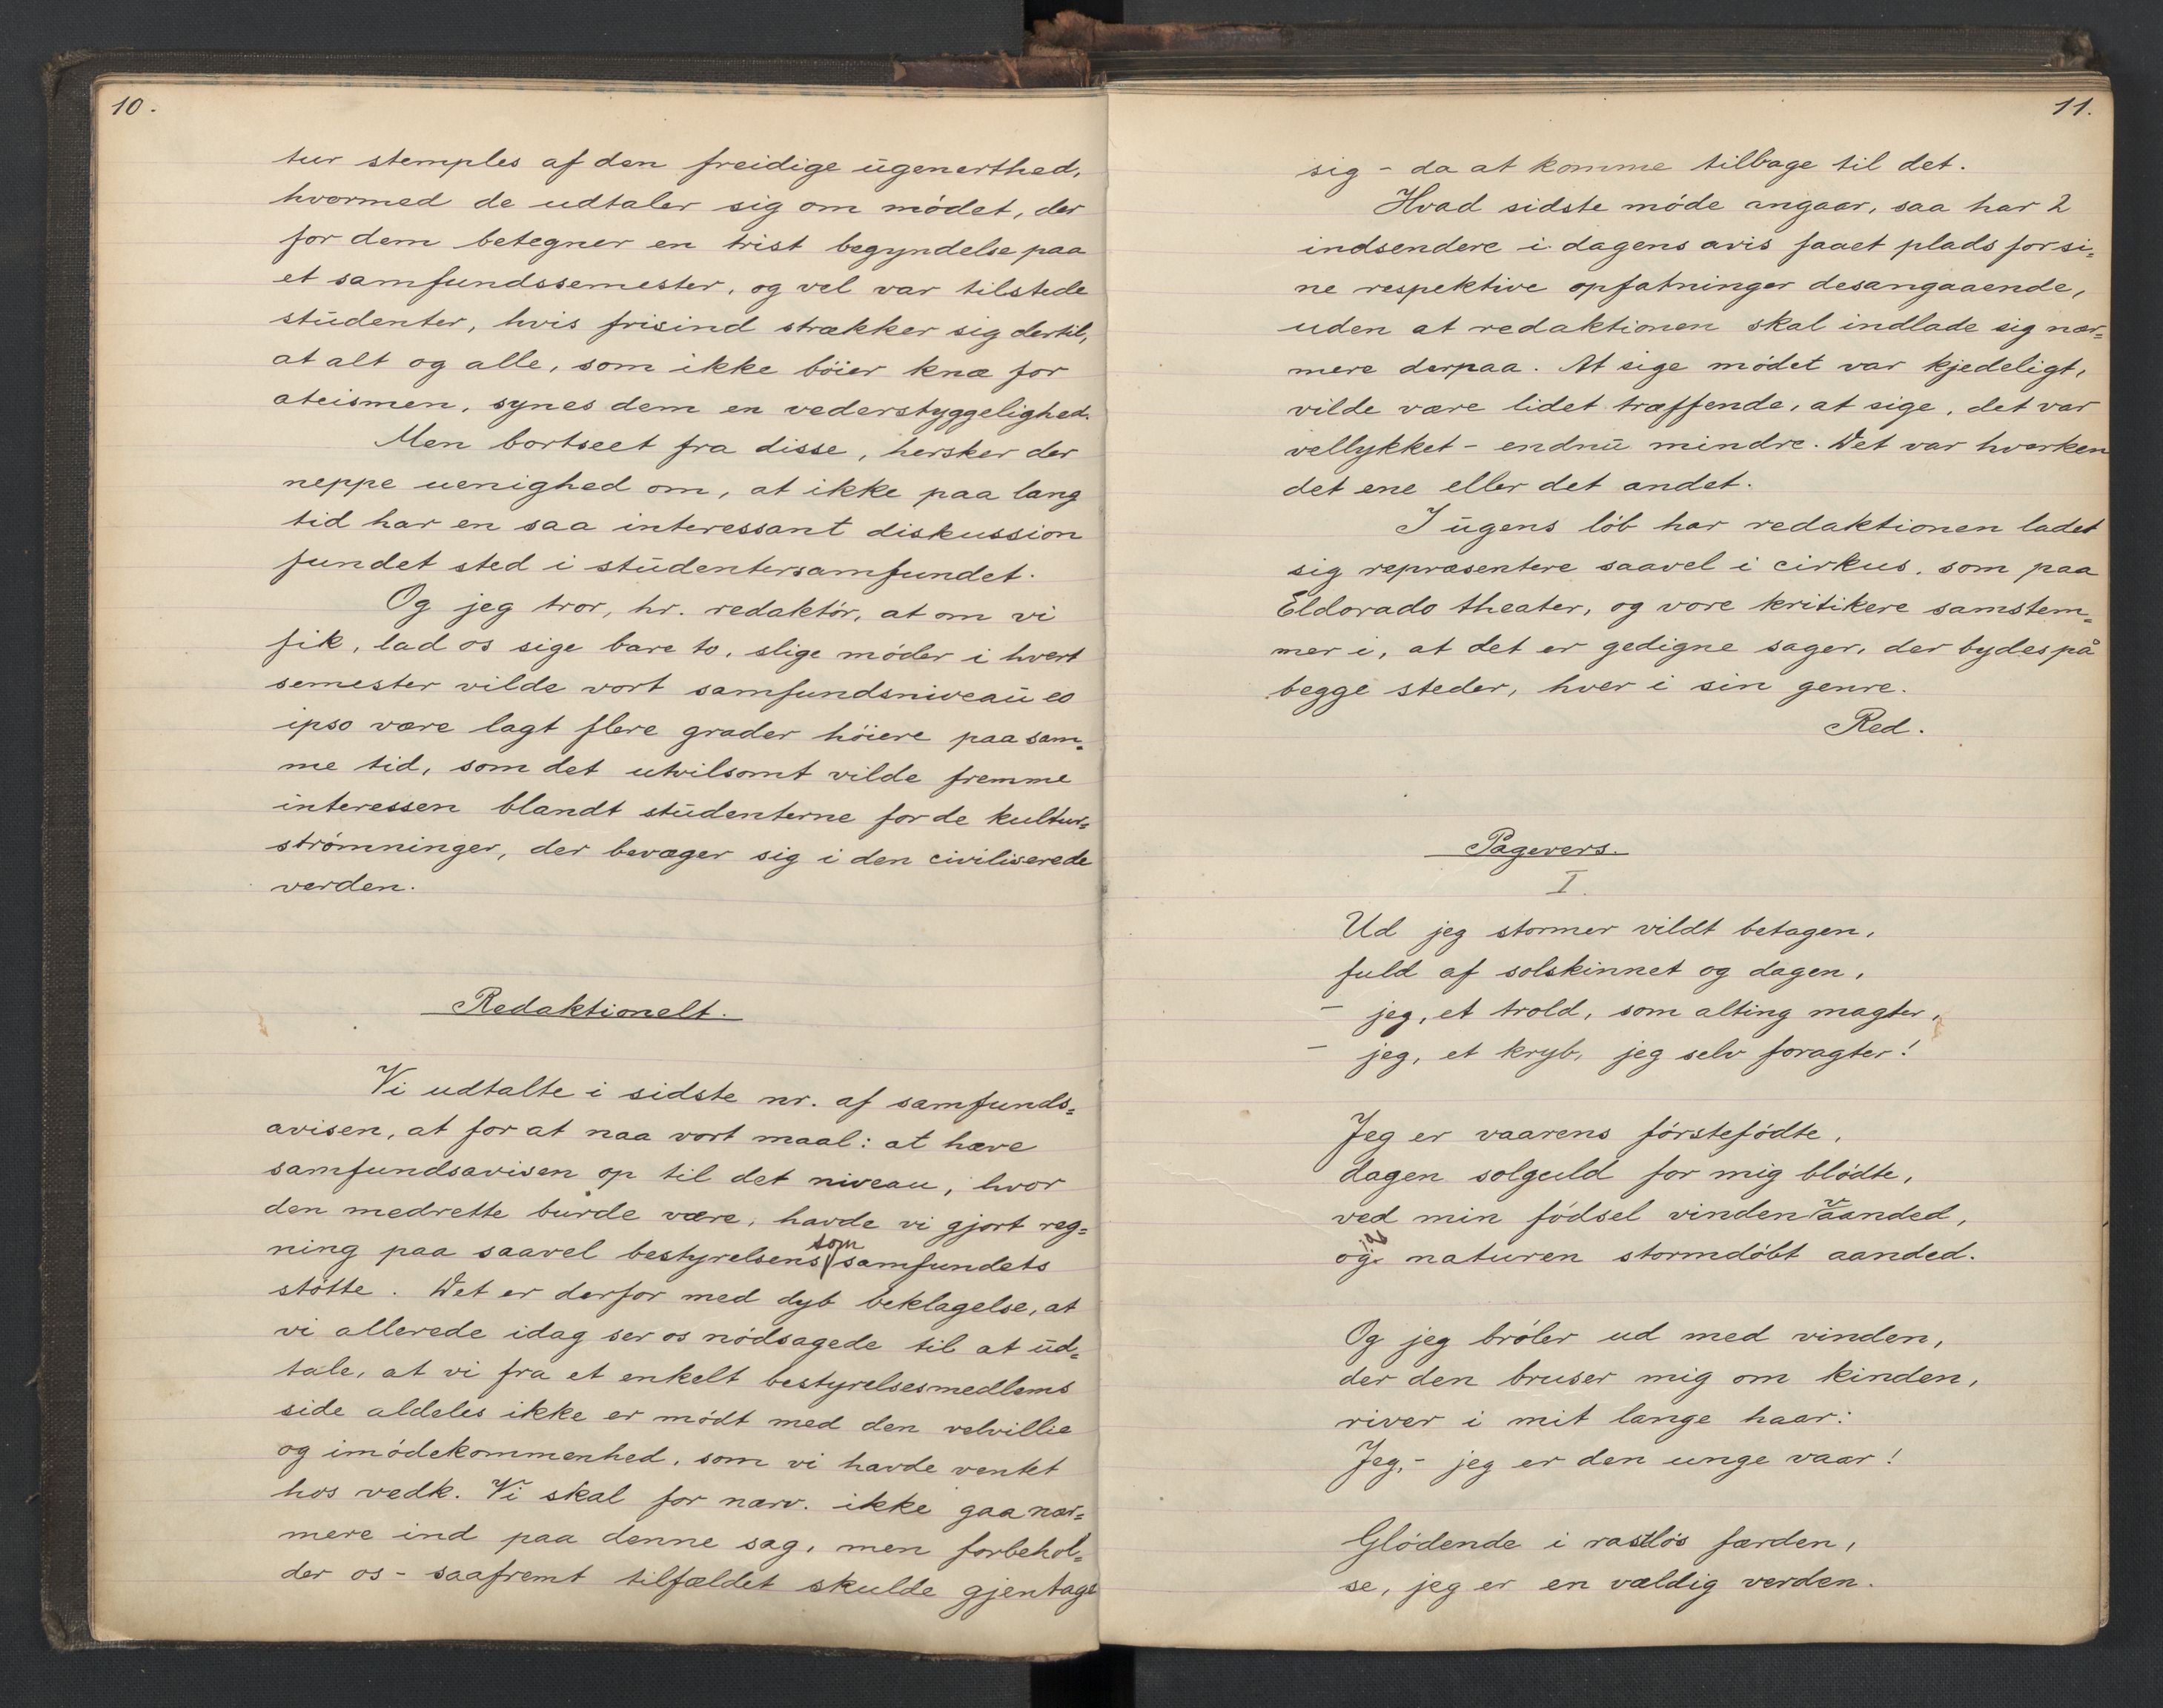 10.
tur stemples af den freidige ugenerthed,
hvormed de udtaler sig om mødet, der
for dem betegner en trist begyndelse paa
et samfundssemester, og vel var tilstede
studenter, hvis frisind strækker sig dertil,
at alt og alle, som ikke bøier knæ for
ateismen, synes dem en vederstyggelighed.
Men bortseet fra disse, hersker der
neppe uenighed om, at ikke paa lang
tid har en saa interessant diskussion
fundet sted i studentersamfundet.
Og jeg tror, hr. redaktør, at om vi
fik, lad os sige bare to, slige møder i hvert
semester vilde vort samfundsniveau eo
ipso være lagt flere grader høiere paa sam=
me tid, som det utvilsomt vilde fremme
interessen blandt studenterne for de kultur=
strømninger, der bevæger sig i den civiliserede
verden.
Redaktionelt.
Vi udtalte i sidste nr. af samfunds=
avisen, at for at naa vort maal: at hæve
samfundsavisen op til det niveau, hvor
den medrette burde være, havde vi gjort reg=
ning paa saavel bestyrelsens som samfundets
støtte. Det er derfor med dyb beklagelse, at
vi allerede idag ser os nødsagede til at ud=
tale, at vi fra et enkelt bestyrelsesmedlems
side aldeles ikke er mødt med den velvillie
og imødekommenhed, som vi havde ventet
hos vedk. Vi skal for nærv. ikke gaa nær=
mere ind paa denne sag, men forbehol=
der os - saafremt tilfældet skulde gjentage
11.
sig - da at komme tilbage til det.
Hvad sidste møde angaar, saa har 2
indsendere i dagens avis faaet plads for si=
ne respektive opfatninger desangaaende,
uden at redaktionen skal indlade sig nær=
mere derpaa. At sige mødet var kjedeligt,
vilde være lidet træffende, at sige, det var
vellykket - endnu mindre. Det var hverken
det ene eller det andet.
I ugens løb har redaktionen ladet
sig repræsentere saavel i cirkus, som paa
Eldorado theater, og vore kritikere samstem=
mer i, at det er gedigne sager, der bydes på
begge steder, hver i sin genre.
Red.
Pagevers.
I.
Ud jeg stormer vildt betagen,
fuld af solskinnet og dagen,
- jeg, et trold, som alting magter,
- jeg, et kryb, jeg selv foragter!
Jeg er vaarens førstefødte,
dagen solguld for mig blødte,
ved min fødsel vinden vaanded,
og naturen stormdøbt aanded.
Og jeg brøler ud med vinden,
der den bruser mig om kinden,
river i mit lange haar:
Jeg, - jeg er den unge vaar!
Glødende i rastløs færden,
se, jeg er en vældig verden.